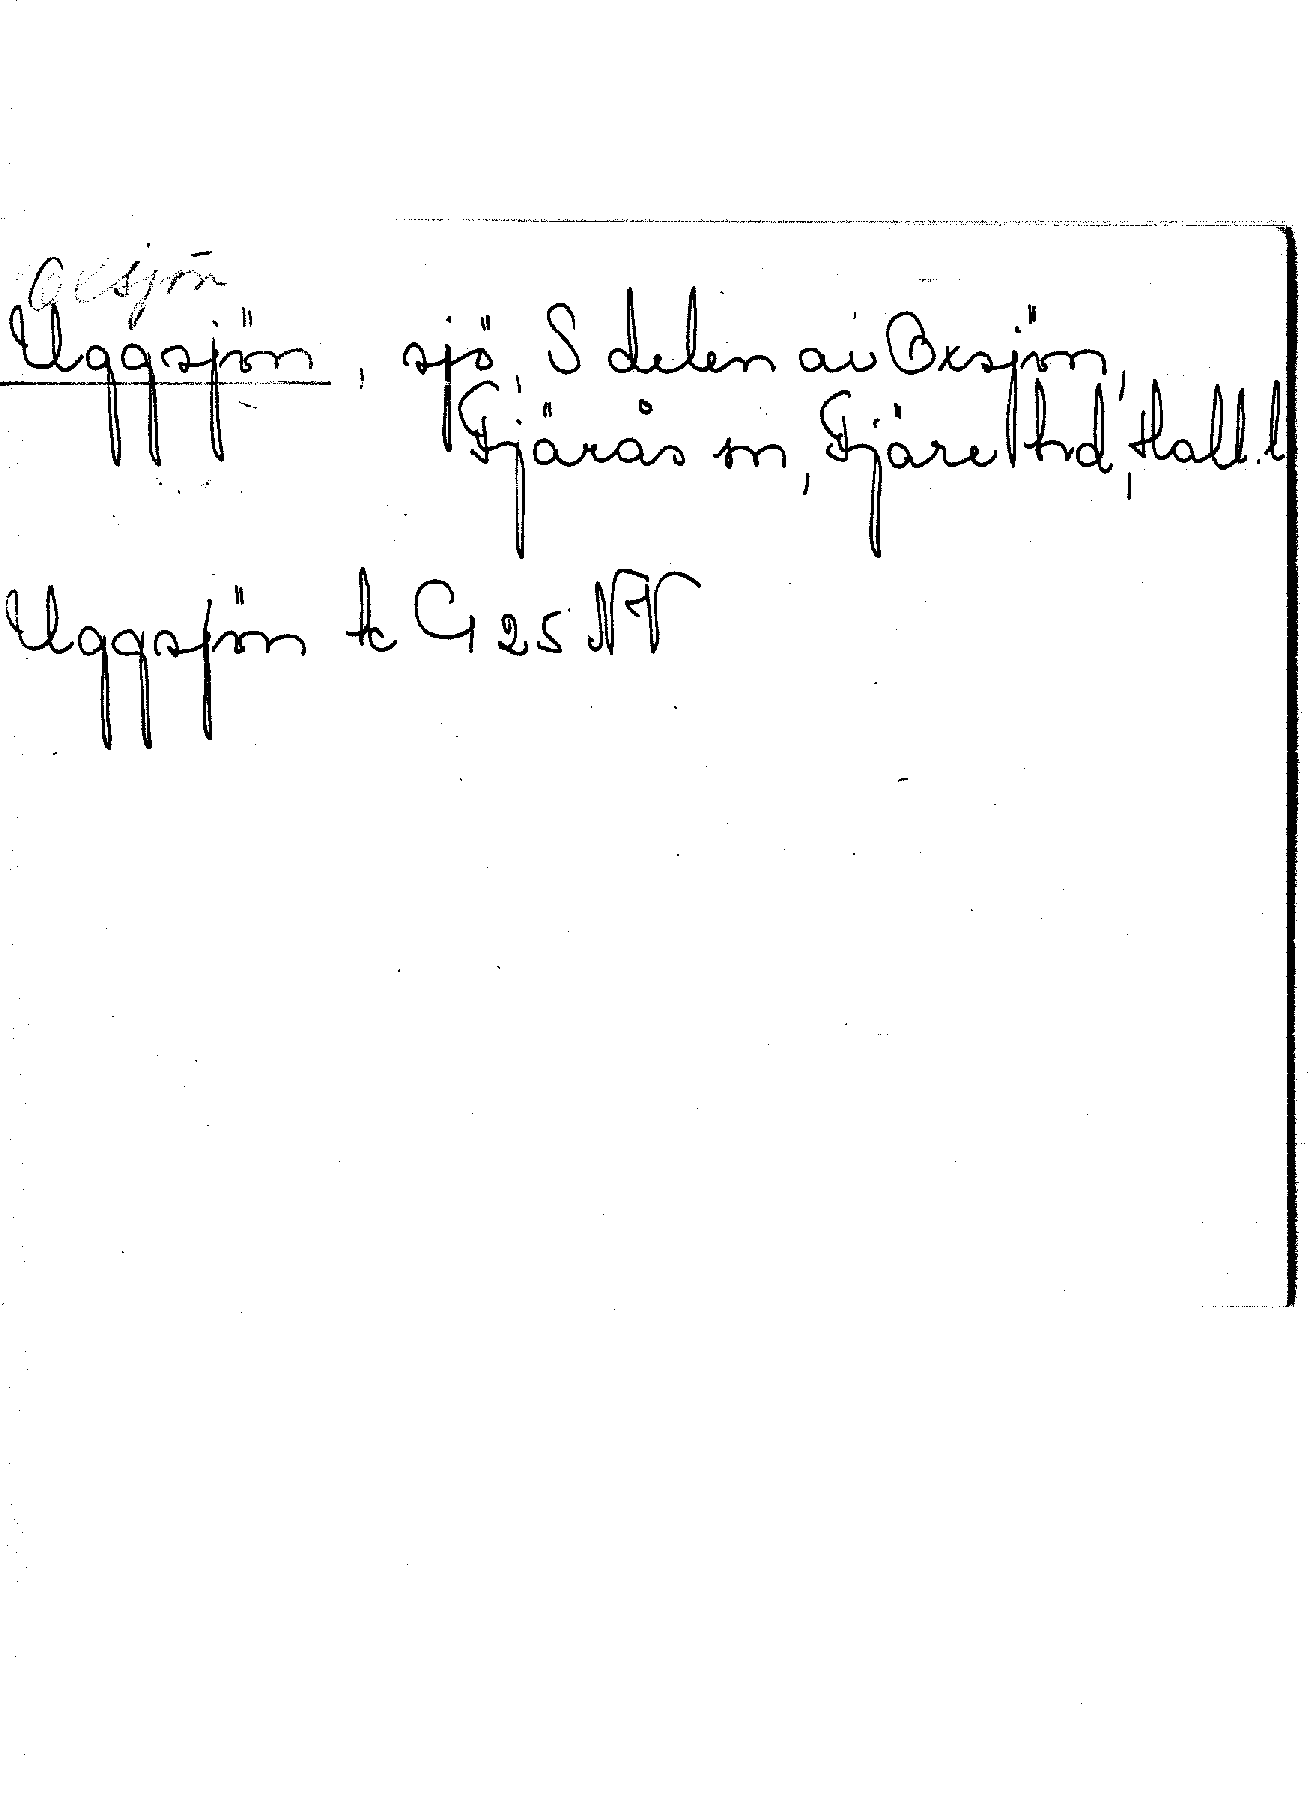 Oxsjön
Uggsjön, sjö, S delen av Oxsjön,
Fjärås sn, Fjäre hd, Hall. l
Uggsjön tc G 25 NV